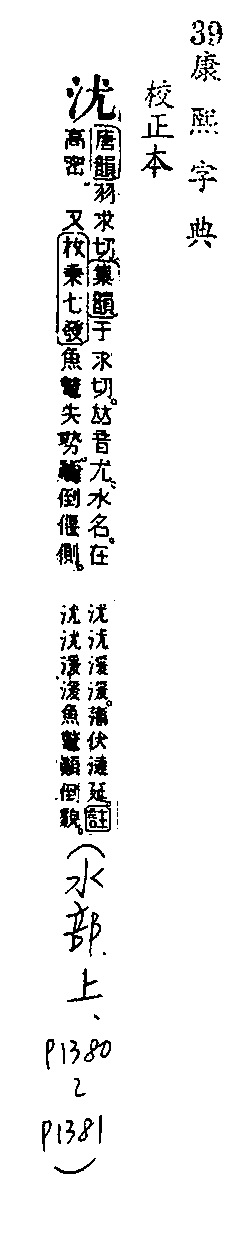 39康熙字典
校正本
沋
唐韻羽求切。集韻于求切。𠀤音尤。水名。在
高密 又枚乗七發魚鼈失勢。顚倒偃側。
沋沋湲湲。蒲伏漣延。註
沋沋湲湲魚鼈顚倒貌。
(水部上、
P1380
乙
P1381
)